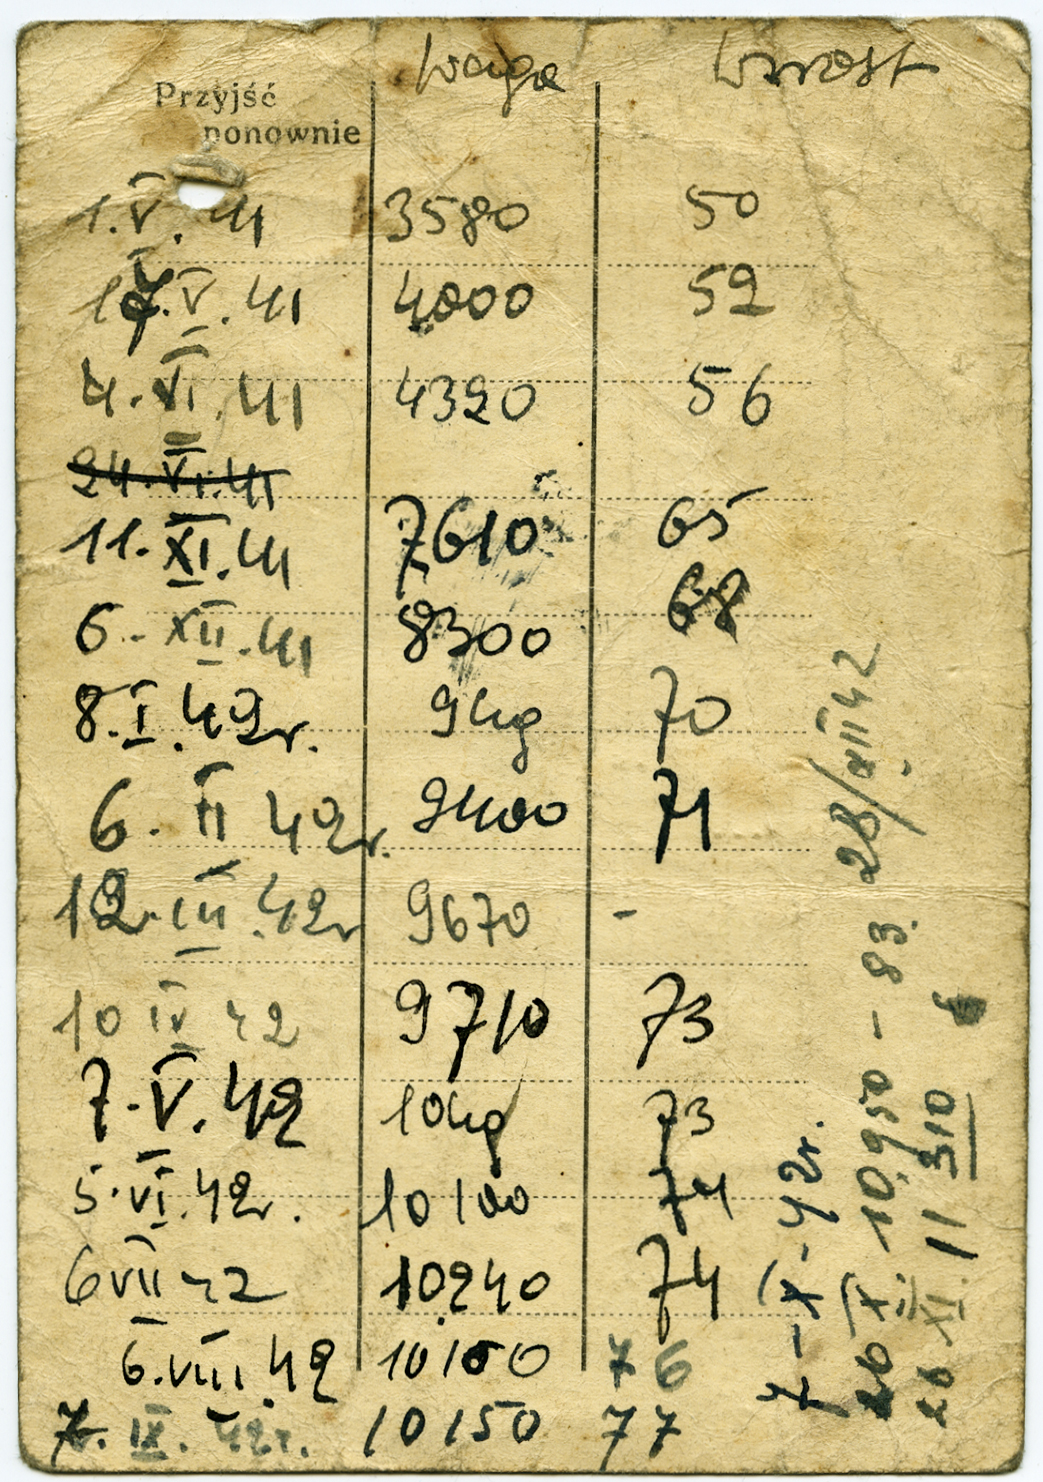 Waga Wzrost
Przyjść
ponownie
1.V.41 3580 50
17.V.41 4000 52
4.VI.41 4320 56
24.VI.41
11.XI.41 7610 65
6.XII.41 8300 68
8.I.42r. 9kg 70
6.II 42r. 9400 71
12.III.42r 9670 -
10 IV 42 9710 73
7.V.42 10kg 73
5.VI.42r. 10100 74
6 VII 42 10240 74
6.VIII.42 10150 76
7.IX.42r. 10150 77
7-X-42r.
20 X 10.950 - 83. 28/XII 42
26 XI 11 310